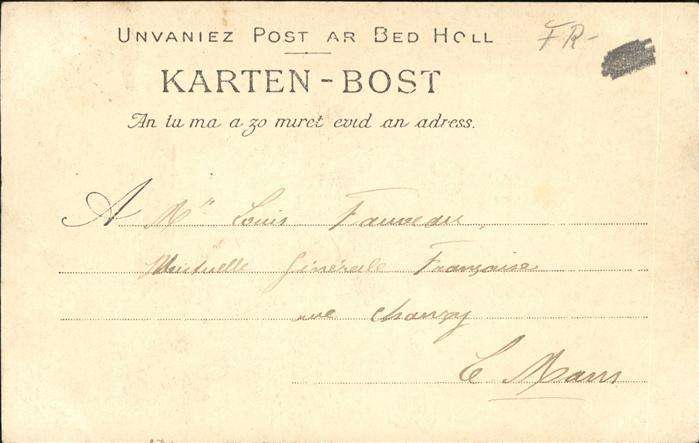 UNVANIEZ POST AR BED HOLL
FR-
KARTEN-BOST
An tu ma a zo miret evid an adress.
A Mr Louis Fauveau,
Mutuelle Générale Française
rue Chanzy
Le Mans